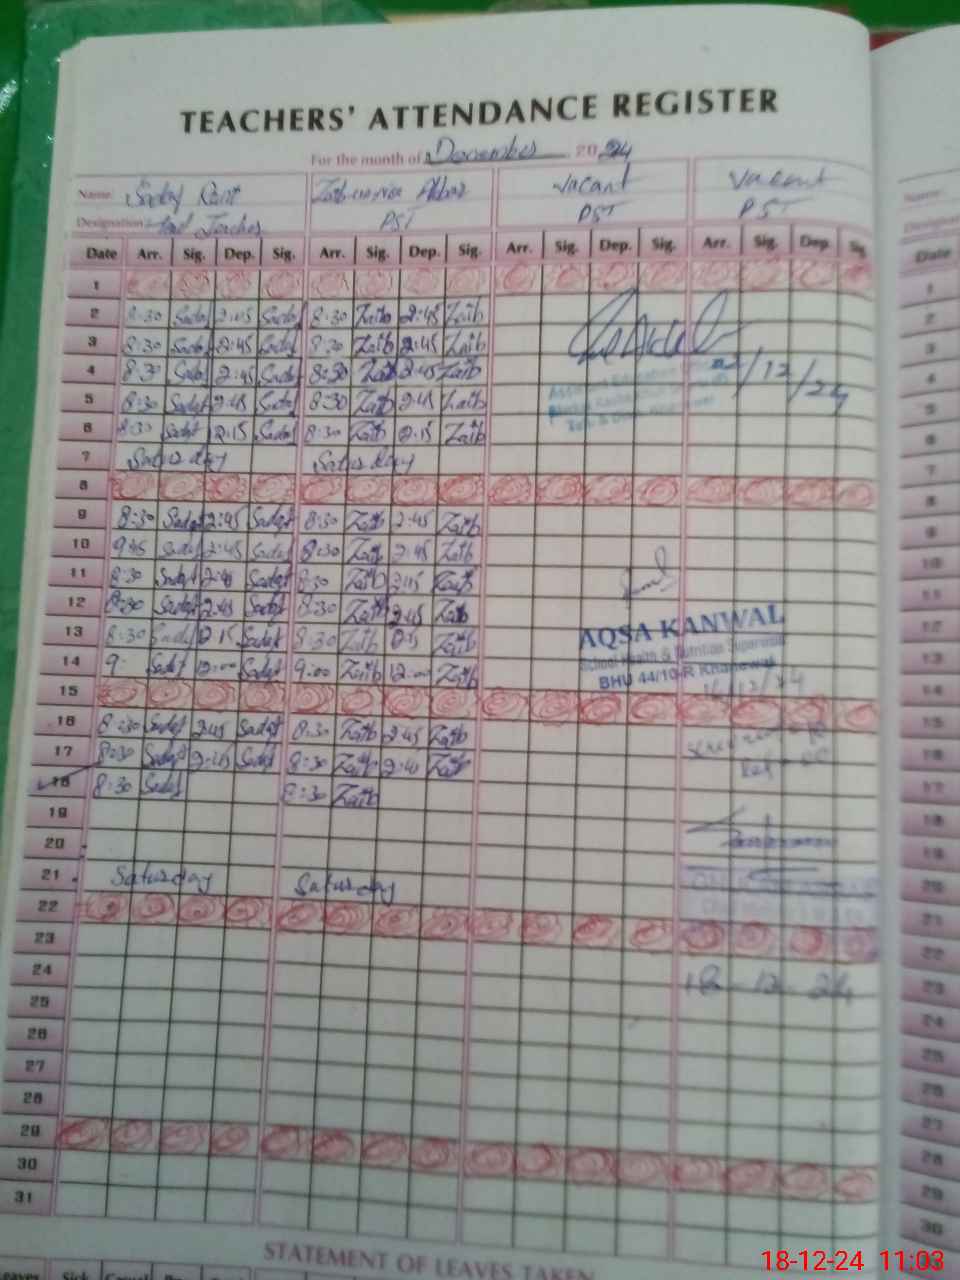 TEACHERS' ATTENDANCE REGISTER
For the month of December 2024
Name: Sadaf vacant vacant
Designation: Head Teacher PST PST PST
Date Arr. Sig. Dep. Sig. Arr. Sig. Dep. Sig. Arr. Sig. Dep. Sig. Arr. Sig. Dep. Sig.
1
2 8:30 Sadaf 2:45 Sadaf 8:30 Zaib 2:45 Zaib
3 8:30 Sadaf 2:45 Sadaf 8:30 Zaib 2:45 Zaib
4 8:30 Sadaf 2:45 Sadaf 8:30 Zaib 2:45 Zaib
5 8:30 Sadaf 2:45 Sadaf 8:30 Zaib 2:45 Zaib
6 8:30 Sadaf 12:15 Sadaf 8:30 Zaib 12:15 Zaib
7 Saturday Saturday
8
9 8:30 Sadaf 2:45 Sadaf 8:30 Zaib 2:45 Zaib
10 9:45 Sadaf 2:45 Sadaf 8:30 Zaib 2:45 Zaib
11 8:30 Sadaf 2:45 Sadaf 8:30 Zaib 2:45 Zaib
12 8:30 Sadaf 2:45 Sadaf 8:30 Zaib 2:45 Zaib
13 8:30 Sadaf 12:15 Sadaf 8:30 Zaib Zaib
14 9: Sadaf 12:00 Sadaf 9:00 Zaib 12:00 Zaib
15
16 8:30 Sadaf 2:45 Sadaf 8:30 Zaib 2:45 Zaib
17 8:30 Sadaf 2:45 Sadaf 8:30 Zaib Zaib
18 8:30 Sadaf 8:30 Zaib
19
20
21 Saturday Saturday
22
23
24
25
26
27
28
29
30
31
/12/24
AQSA KANWAL
School Health & Nutrition Supervisor
BHU 44/10-R Khanewal
/12/24
18-12-24
STATEMENT OF LEAVES TAKEN
Leaves Sick Casual
Name
Date
1
2
3
4
5
6
7
8
9
10
11
12
13
14
15
16
17
18
19
20
21
22
23
24
25
26
27
28
29
30
18-12-24 11:03